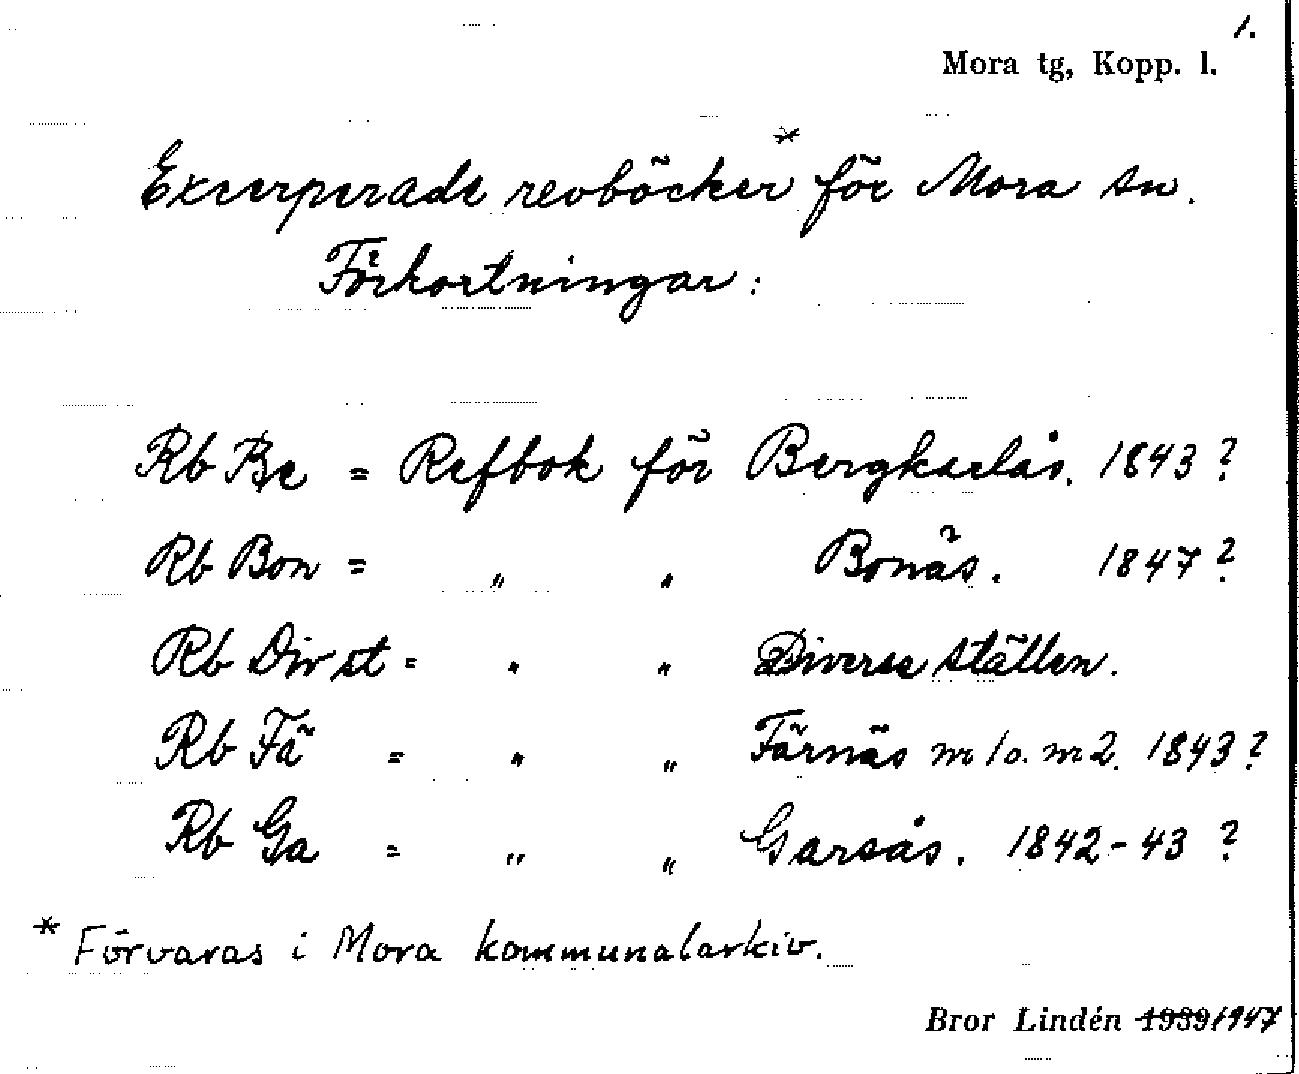 1.
Mora tg, Kopp. l.
Excerperade revböcker* för Mora sn.
Förkortningar:
Rb Be = Refbok för Bergkarlås. 1843?
Rb Bon = " " Bonäs. 1847?
Rb Div st = " " Diverse ställen.
Rb Fä = " " Färnäs nr 1 o. nr 2. 1843?
Rb Ga = " " Garsås. 1842-43?
* Förvaras i Mora kommunalarkiv.
Bror Lindén 1939 1947